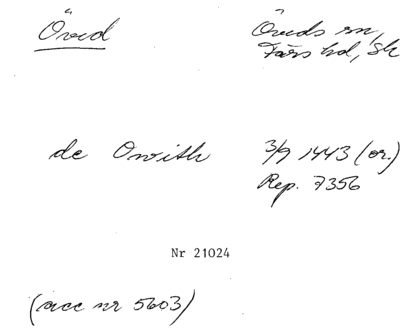 Öved
Öveds sn,
Färs hd, Sk
de Owith
3/9 1443 (or.)
Rep. 7356
Nr 21024
(acc nr 5603)